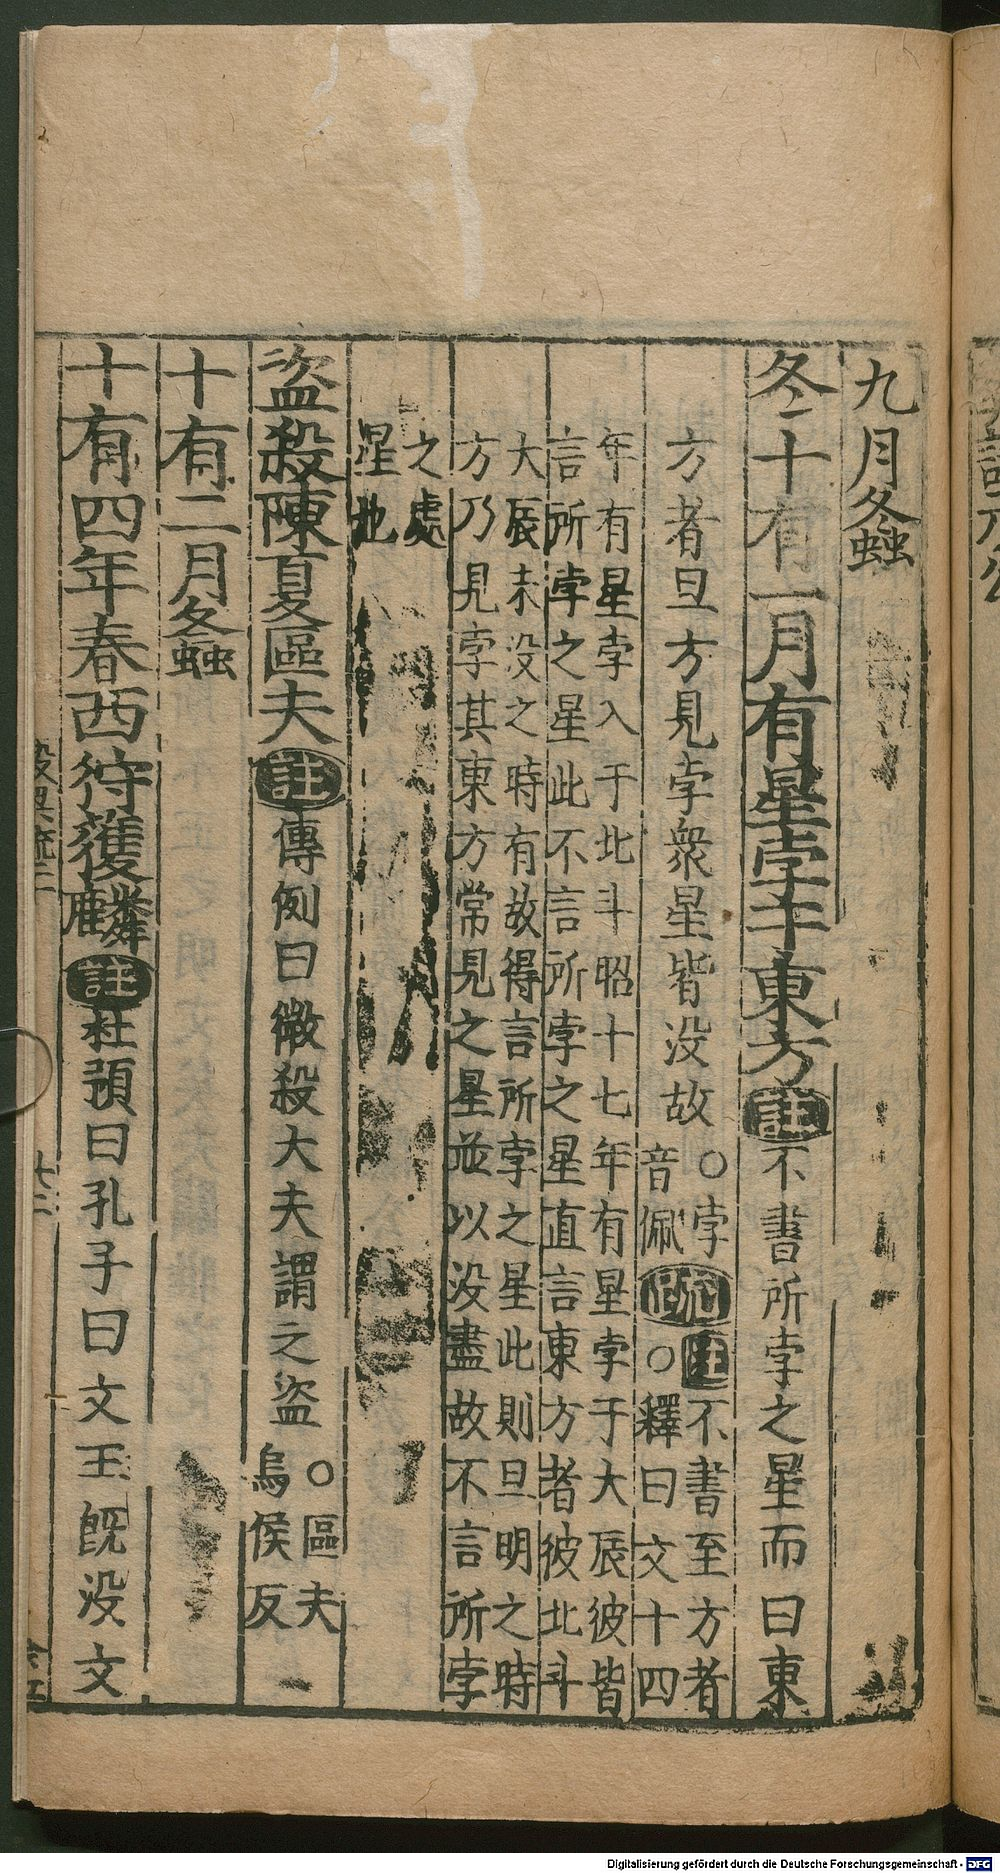 九月螽
冬十有一月有星孛于東方註不書所孛之星而曰東
方者旦方見孛衆星皆没故○孛
音佩疏註不書至方者
○釋曰文十四
年有星孛入于北斗昭十七年有星孛于大辰彼皆
言所孛之星此不言所孛之星直言東方者彼北斗
大辰未没之時有故得言所孛之星此則旦明之時
方乃見孛其東方常見之星並以没盡故不言所孛
之處
星也
盜殺陳夏區夫註傳例曰微殺大夫謂之盜○區夫
烏侯反
十有二月螽
十有四年春西狩獲麟註杜預曰孔子曰文王旣没文
Digitalisierung gefördert durch die Deutsche Forschungsgemeinschaft - DFG